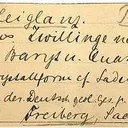 Bleiglanz.
Zwillinge n
Baryt u. Quar
Krystallform cf. Sadeb
der Deutsch geol. Ges. p.
Freiberg, Sac